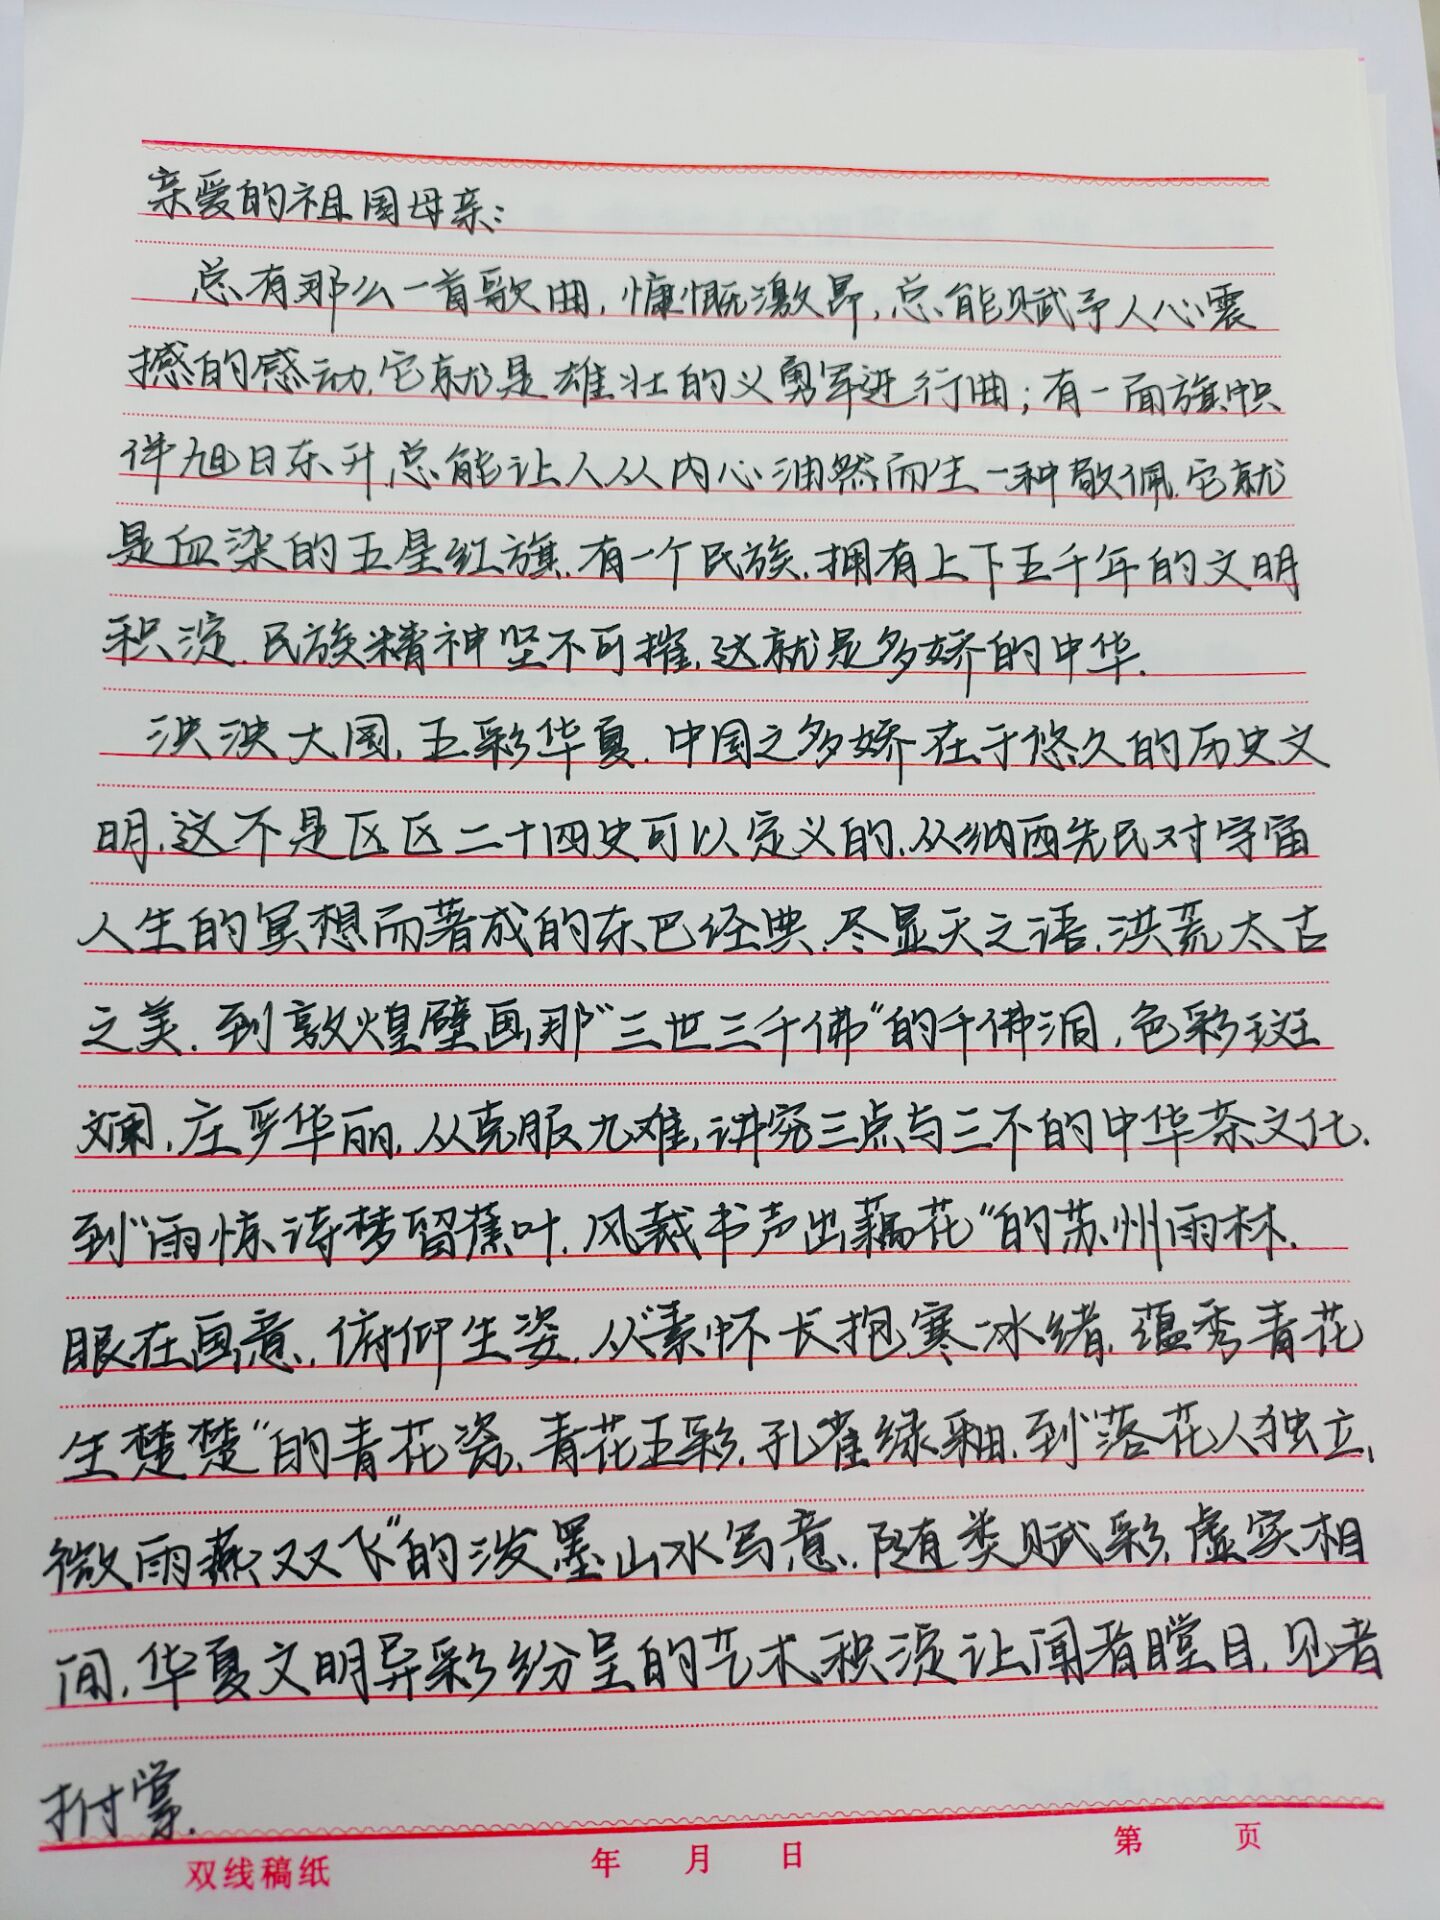 亲爱的祖国母亲:
总有那么一首歌曲,慷慨激昂,总能赋予人心震
撼的感动.它就是雄壮的义勇军进行曲;有一面旗帜
伴旭日东升,总能让人从内心油然而生一种敬佩.它就
是血染的五星红旗.有一个民族.拥有上下五千年的文明
积淀.民族精神坚不可摧,这就是多娇的中华.
泱泱大国,五彩华夏.中国之多娇在于悠久的历史文
明,这不是区区二十四史可以定义的.从纳西先民对宇宙
人生的冥想而著成的东巴经典.尽显天之语.洪荒太古
之美.到敦煌壁画那"三世三千佛"的千佛洞,色彩斑
斓,庄严华丽.从克服九难,讲究三点与三不的中华茶文化.
到"雨惊诗梦留蕉叶.风裁书声出藕花"的苏州雨林.
眼在画意.俯仰生姿.从"素怀长抱寒冰绪.蕴秀青花
生楚楚"的青花瓷,青花五彩.孔雀绿釉.到"落花人独立,
微雨燕双飞"的泼墨山水写意.随类赋彩.虚实相
间.华夏文明异彩纷呈的艺术积淀让闻者瞠目.见者
拊掌.
双线稿纸 年 月 日 第 页